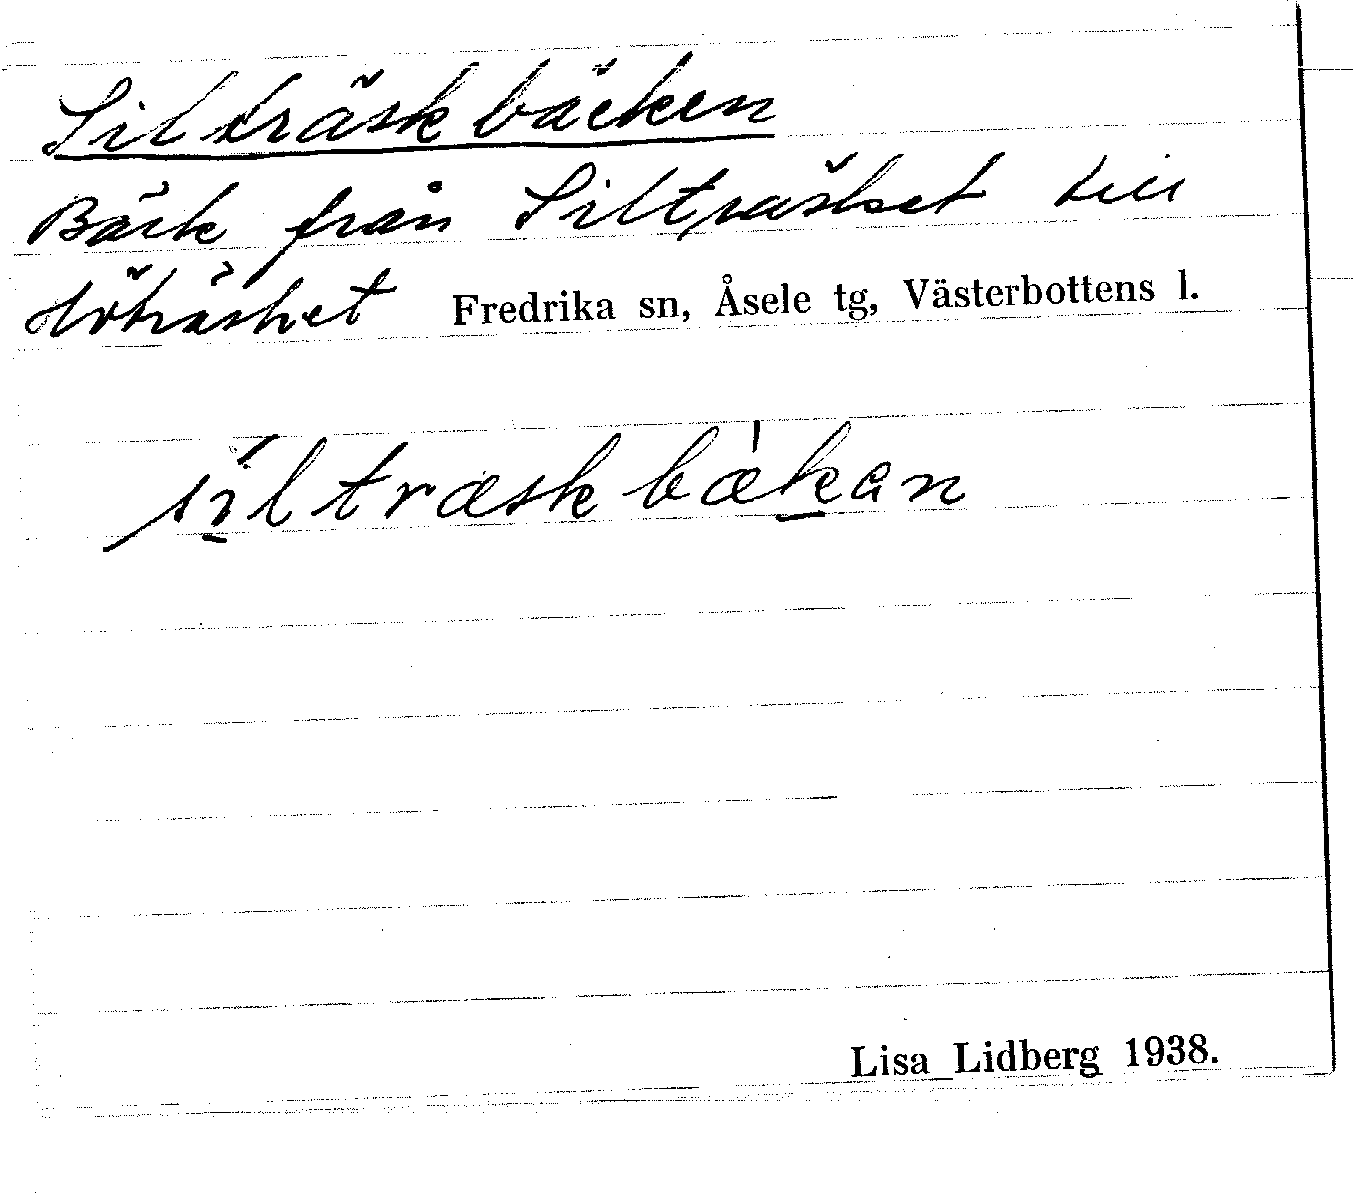 Silträskbäcken
Bäck från Silträsket till
Höträsket Fredrika sn, Åsele tg, Västerbottens l.
siltræskbækan
Lisa Lidberg 1938.